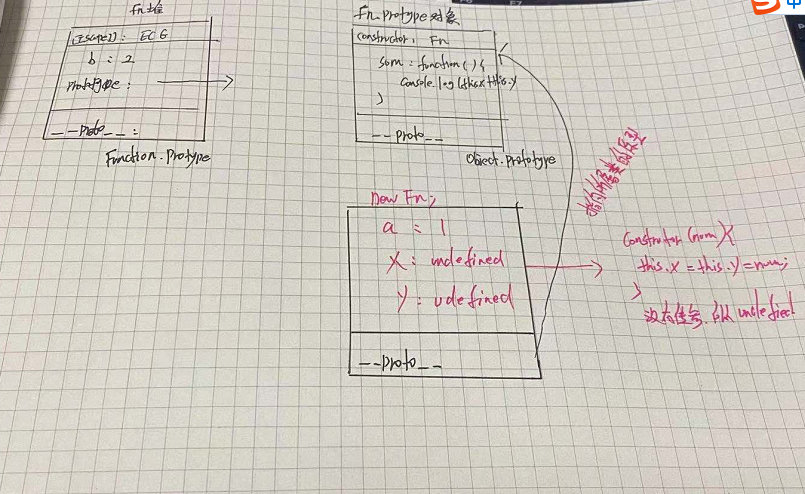 Fn 堆
[[scope]]: EC G
b : 2
prototype :
__proto__ :
Function.Protype
Fn.protype 对象
constructor. Fn
sum : function () {
Console.log(this.x+this.y
}
__proto__
Object.prototype
new Fn;
a : 1
X : undefined
Y : udefined
__proto__
Constrtor (num) {
this.x = this.y = num;
}
没有传参.